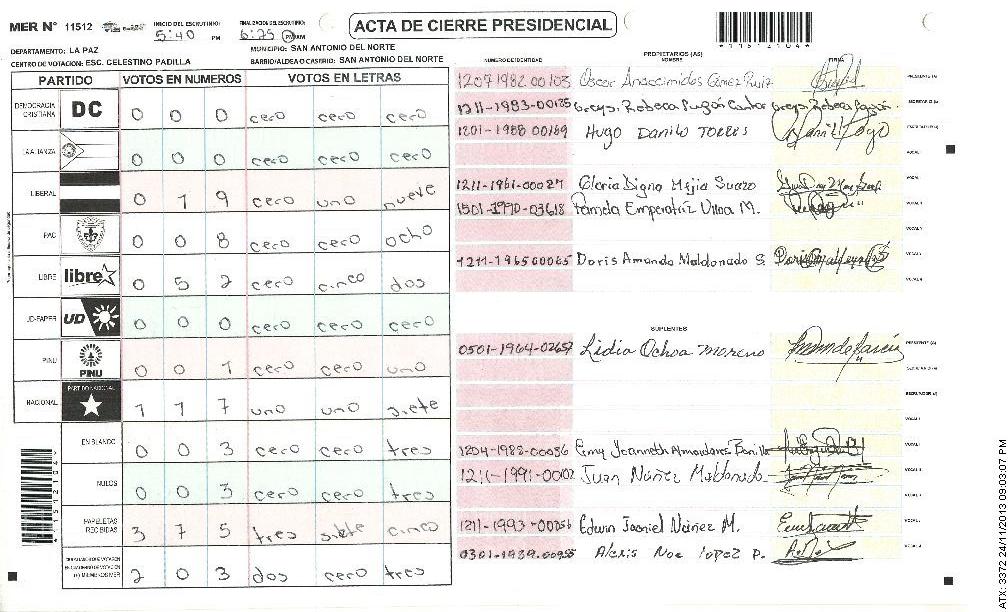 MER N° 11512
INICIO DEL ESCRUTINIO:
5:40 PM
FINALIZACIÓN DEL ESCRUTINIO:
6:25 PM AM
ACTA DE CIERRE PRESIDENCIAL
DEPARTAMENTO: LA PAZ
MUNICIPIO: SAN ANTONIO DEL NORTE
CENTRO DE VOTACION: ESC. CELESTINO PADILLA
BARRIO/ALDEA O CASERIO: SAN ANTONIO DEL NORTE
PARTIDO VOTOS EN NUMEROS VOTOS EN LETRAS
DEMOCRACIA CRISTIANA DC 0 0 0 cero cero cero
LA ALIANZA 0 0 0 cero cero cero
LIBERAL 0 1 9 cero uno nueve
PAC 0 0 8 cero cero ocho
LIBRE libre 0 5 2 cero cinco dos
UD-FAPER UD 0 0 0 cero cero cero
PINU PINU 0 0 1 cero cero uno
NACIONAL PARTIDO NACIONAL 1 1 7 uno uno siete
EN BLANCO 0 0 3 cero cero tres
NULOS 0 0 3 cero cero tres
PAPELETAS RECIBIDAS 3 7 5 tres siete cinco
2 0 3 dos cero tres
PROPIETARIOS (AS)
NUMERO DE IDENTIDAD NOMBRE FIRMA
1207-1982-00103 Oscar Anaccimides Gomez Ruiz PRESIDENTE (A)
1211-1983-00135
1201-1988-00189 Hugo Danilo Torres
VOCAL I
1211-1961-00027 Gloria Digna Mejia Suazo
1501-1990-03618 Pamela Emperatriz Ulloa M.
1211-1965-00065 Doris Amanda Maldonado S.
SUPLENTES
0501-1964-02657 Lidia Ochoa Moreno PRESIDENTE (A)
SECRETARIO (A)
ESCRUTADOR (A)
VOCAL I
1204-1988-00096 Emy Jeanneth Almendares Bonilla
1211-1991-00002 Juan Núñez Maldonado
1211-1993-00056 Edwin Jasniel Núñez M.
0301-1989-00955 Alexis Noe lopez P.
ATX: 3372 24/11/2013 09:03:07 PM